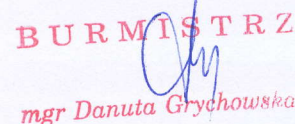 BURMISTRZ
mgr Danuta Grychowska